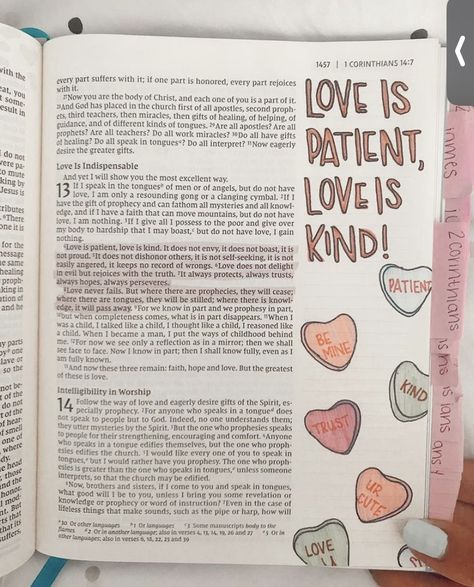 1457 | 1 CORINTHIANS 14:7
every part suffers with it; if one part is honored, every part rejoices
with it.
27Now you are the body of Christ, and each one of you is a part of it.
28And God has placed in the church first of all apostles, second proph-
ets, third teachers, then miracles, then gifts of healing, of helping, of
guidance, and of different kinds of tongues. 29Are all apostles? Are all
prophets? Are all teachers? Do all work miracles? 30Do all have gifts
of healing? Do all speak in tongues? Do all interpret? 31Now eagerly
desire the greater gifts.
Love Is Indispensable
And yet I will show you the most excellent way.
13 If I speak in the tongues of men or of angels, but do not have
love, I am only a resounding gong or a clanging cymbal. 2If I have
the gift of prophecy and can fathom all mysteries and all knowl-
edge, and if I have a faith that can move mountains, but do not have
love, I am nothing. 3If I give all I possess to the poor and give over
my body to hardship that I may boast, but do not have love, I gain
nothing.
4Love is patient, love is kind. It does not envy, it does not boast, it is
not proud. 5It does not dishonor others, it is not self-seeking, it is not
easily angered, it keeps no record of wrongs. 6Love does not delight
in evil but rejoices with the truth. 7It always protects, always trusts,
always hopes, always perseveres.
8Love never fails. But where there are prophecies, they will cease;
where there are tongues, they will be stilled; where there is knowl-
edge, it will pass away. 9For we know in part and we prophesy in part,
10but when completeness comes, what is in part disappears. 11When I
was a child, I talked like a child, I thought like a child, I reasoned like
a child. When I became a man, I put the ways of childhood behind
me. 12For now we see only a reflection as in a mirror; then we shall
see face to face. Now I know in part; then I shall know fully, even as I
am fully known.
13And now these three remain: faith, hope and love. But the greatest
of these is love.
Intelligibility in Worship
14 Follow the way of love and eagerly desire gifts of the Spirit, es-
pecially prophecy. 2For anyone who speaks in a tongue does
not speak to people but to God. Indeed, no one understands them;
they utter mysteries by the Spirit. 3But the one who prophesies speaks
to people for their strengthening, encouraging and comfort. 4Anyone
who speaks in a tongue edifies themselves, but the one who proph-
esies edifies the church. 5I would like every one of you to speak in
tongues, but I would rather have you prophesy. The one who proph-
esies is greater than the one who speaks in tongues, unless someone
interprets, so that the church may be edified.
6Now, brothers and sisters, if I come to you and speak in tongues,
what good will I be to you, unless I bring you some revelation or
knowledge or prophecy or word of instruction? 7Even in the case of
lifeless things that make sounds, such as the pipe or harp, how will
30 Or other languages 1 Or languages 3 Some manuscripts body to the
flames 2 Or in another language; also in verses 4, 13, 14, 19, 26 and 27 5 Or in
other languages; also in verses 6, 18, 22, 23 and 39
LOVE IS
PATIENT,
LOVE IS
KIND!
PATIENT
BE
MINE
KIND
TRUST
UR
CUTE
LOVE